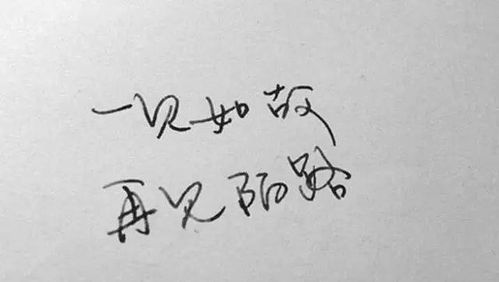 一见如故
再见陌路